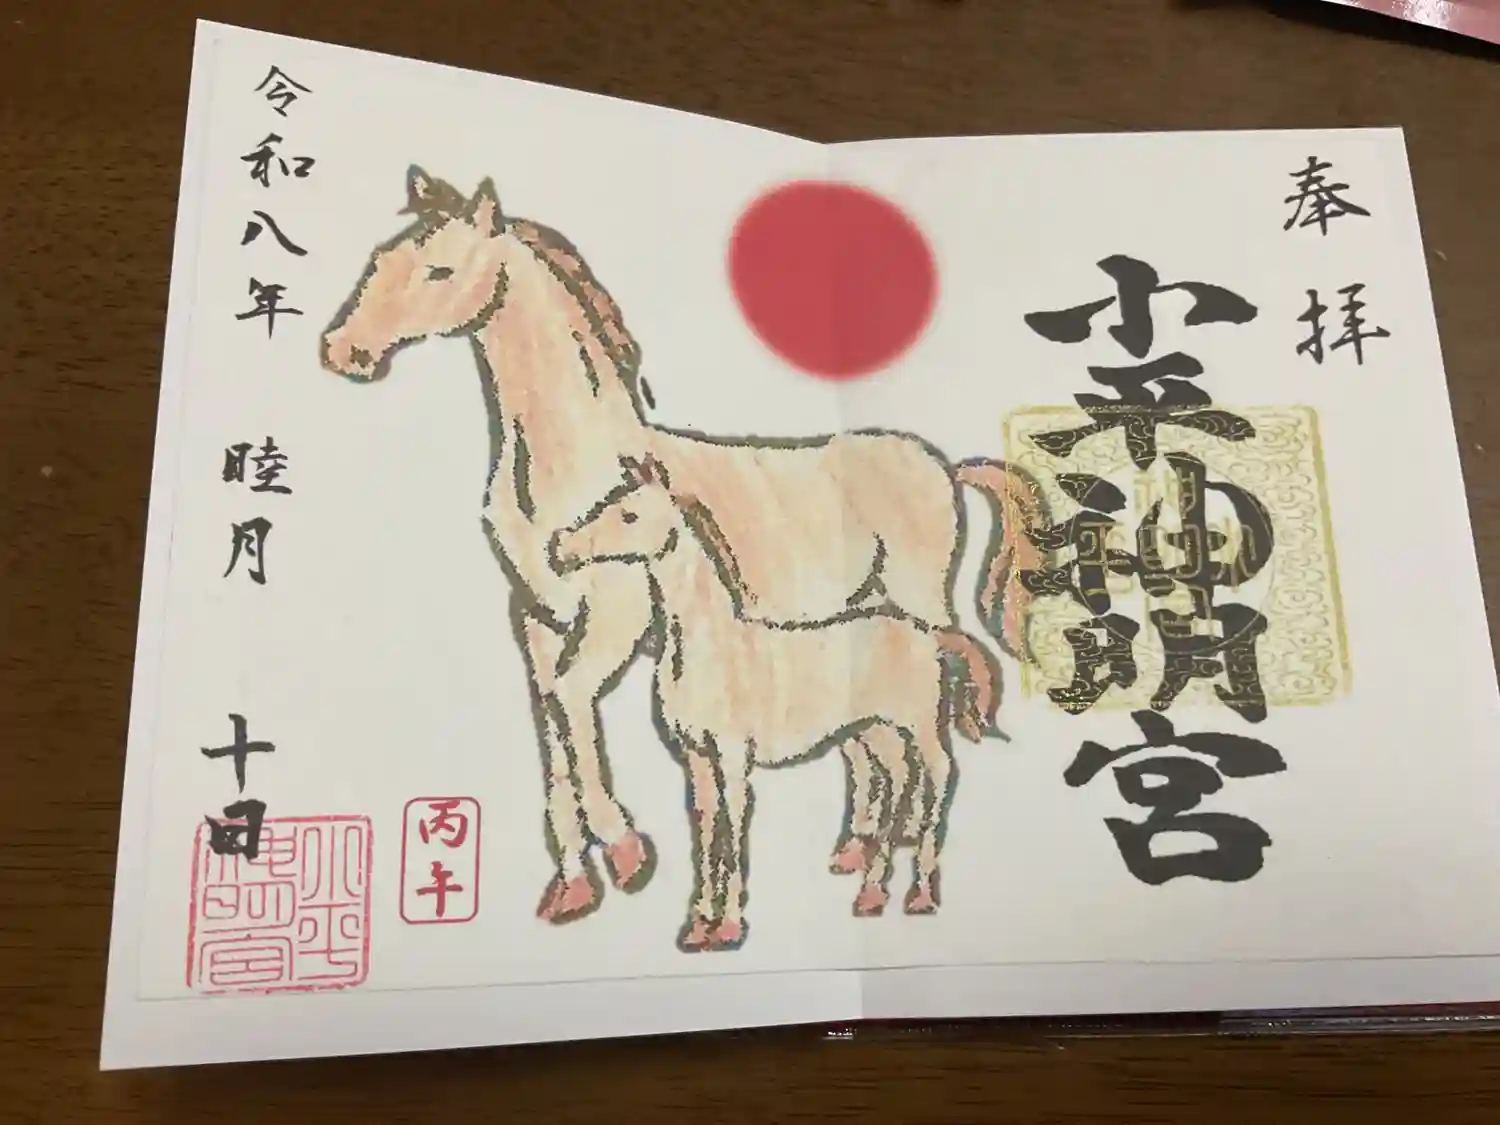 奉拝
小平神明宮
令和八年 睦月 十日
丙午
小平
神明宮